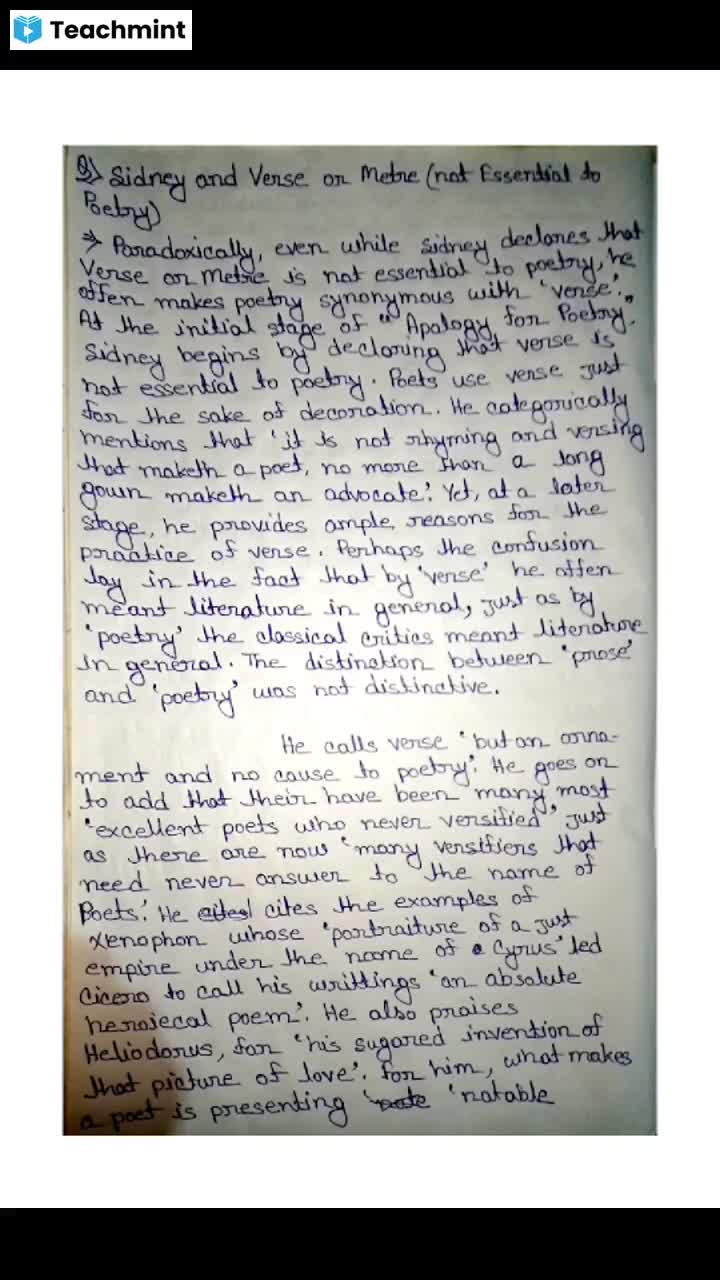 Teachmint
Q) Sidney and Verse or Metre (not Essential to
Poetry)
⇒ Paradoxically, even while Sidney declares that
Verse or Metre is not essential to poetry, he
offen makes poetry synonymous with 'verse'.
At the initial stage of "Apology for Poetry",
Sidney begins by declaring that verse is
not essential to poetry. Poets use verse just
for the sake of decoration. He categorically
mentions that 'it is not rhyming and versing
that maketh a poet, no more than a long
gown maketh an advocate'. Yet, at a later
stage, he provides ample reasons for the
practice of verse. Perhaps the confusion
lay in the fact that by 'verse' he offen
meant literature in general, just as by
'poetry' the classical critics meant literature
in general. The distination between 'prose'
and 'poetry' was not distinctive.
He calls verse 'but an orna-
ment and no cause to poetry'. He goes on
to add that their have been many most
'excellent poets who never versified' just
as there are now 'many versifiers that
need never answer to the name of
Poets'. He cites the examples of
Xenophon whose 'portraiture of a just
empire under the name of Cyrus' led
Cicero to call his writtings 'an absolute
heroiecal poem'. He also praises
Heliodorus, for 'his sugared invention of
that picture of love'. For him, what makes
a poet is presenting 'notable